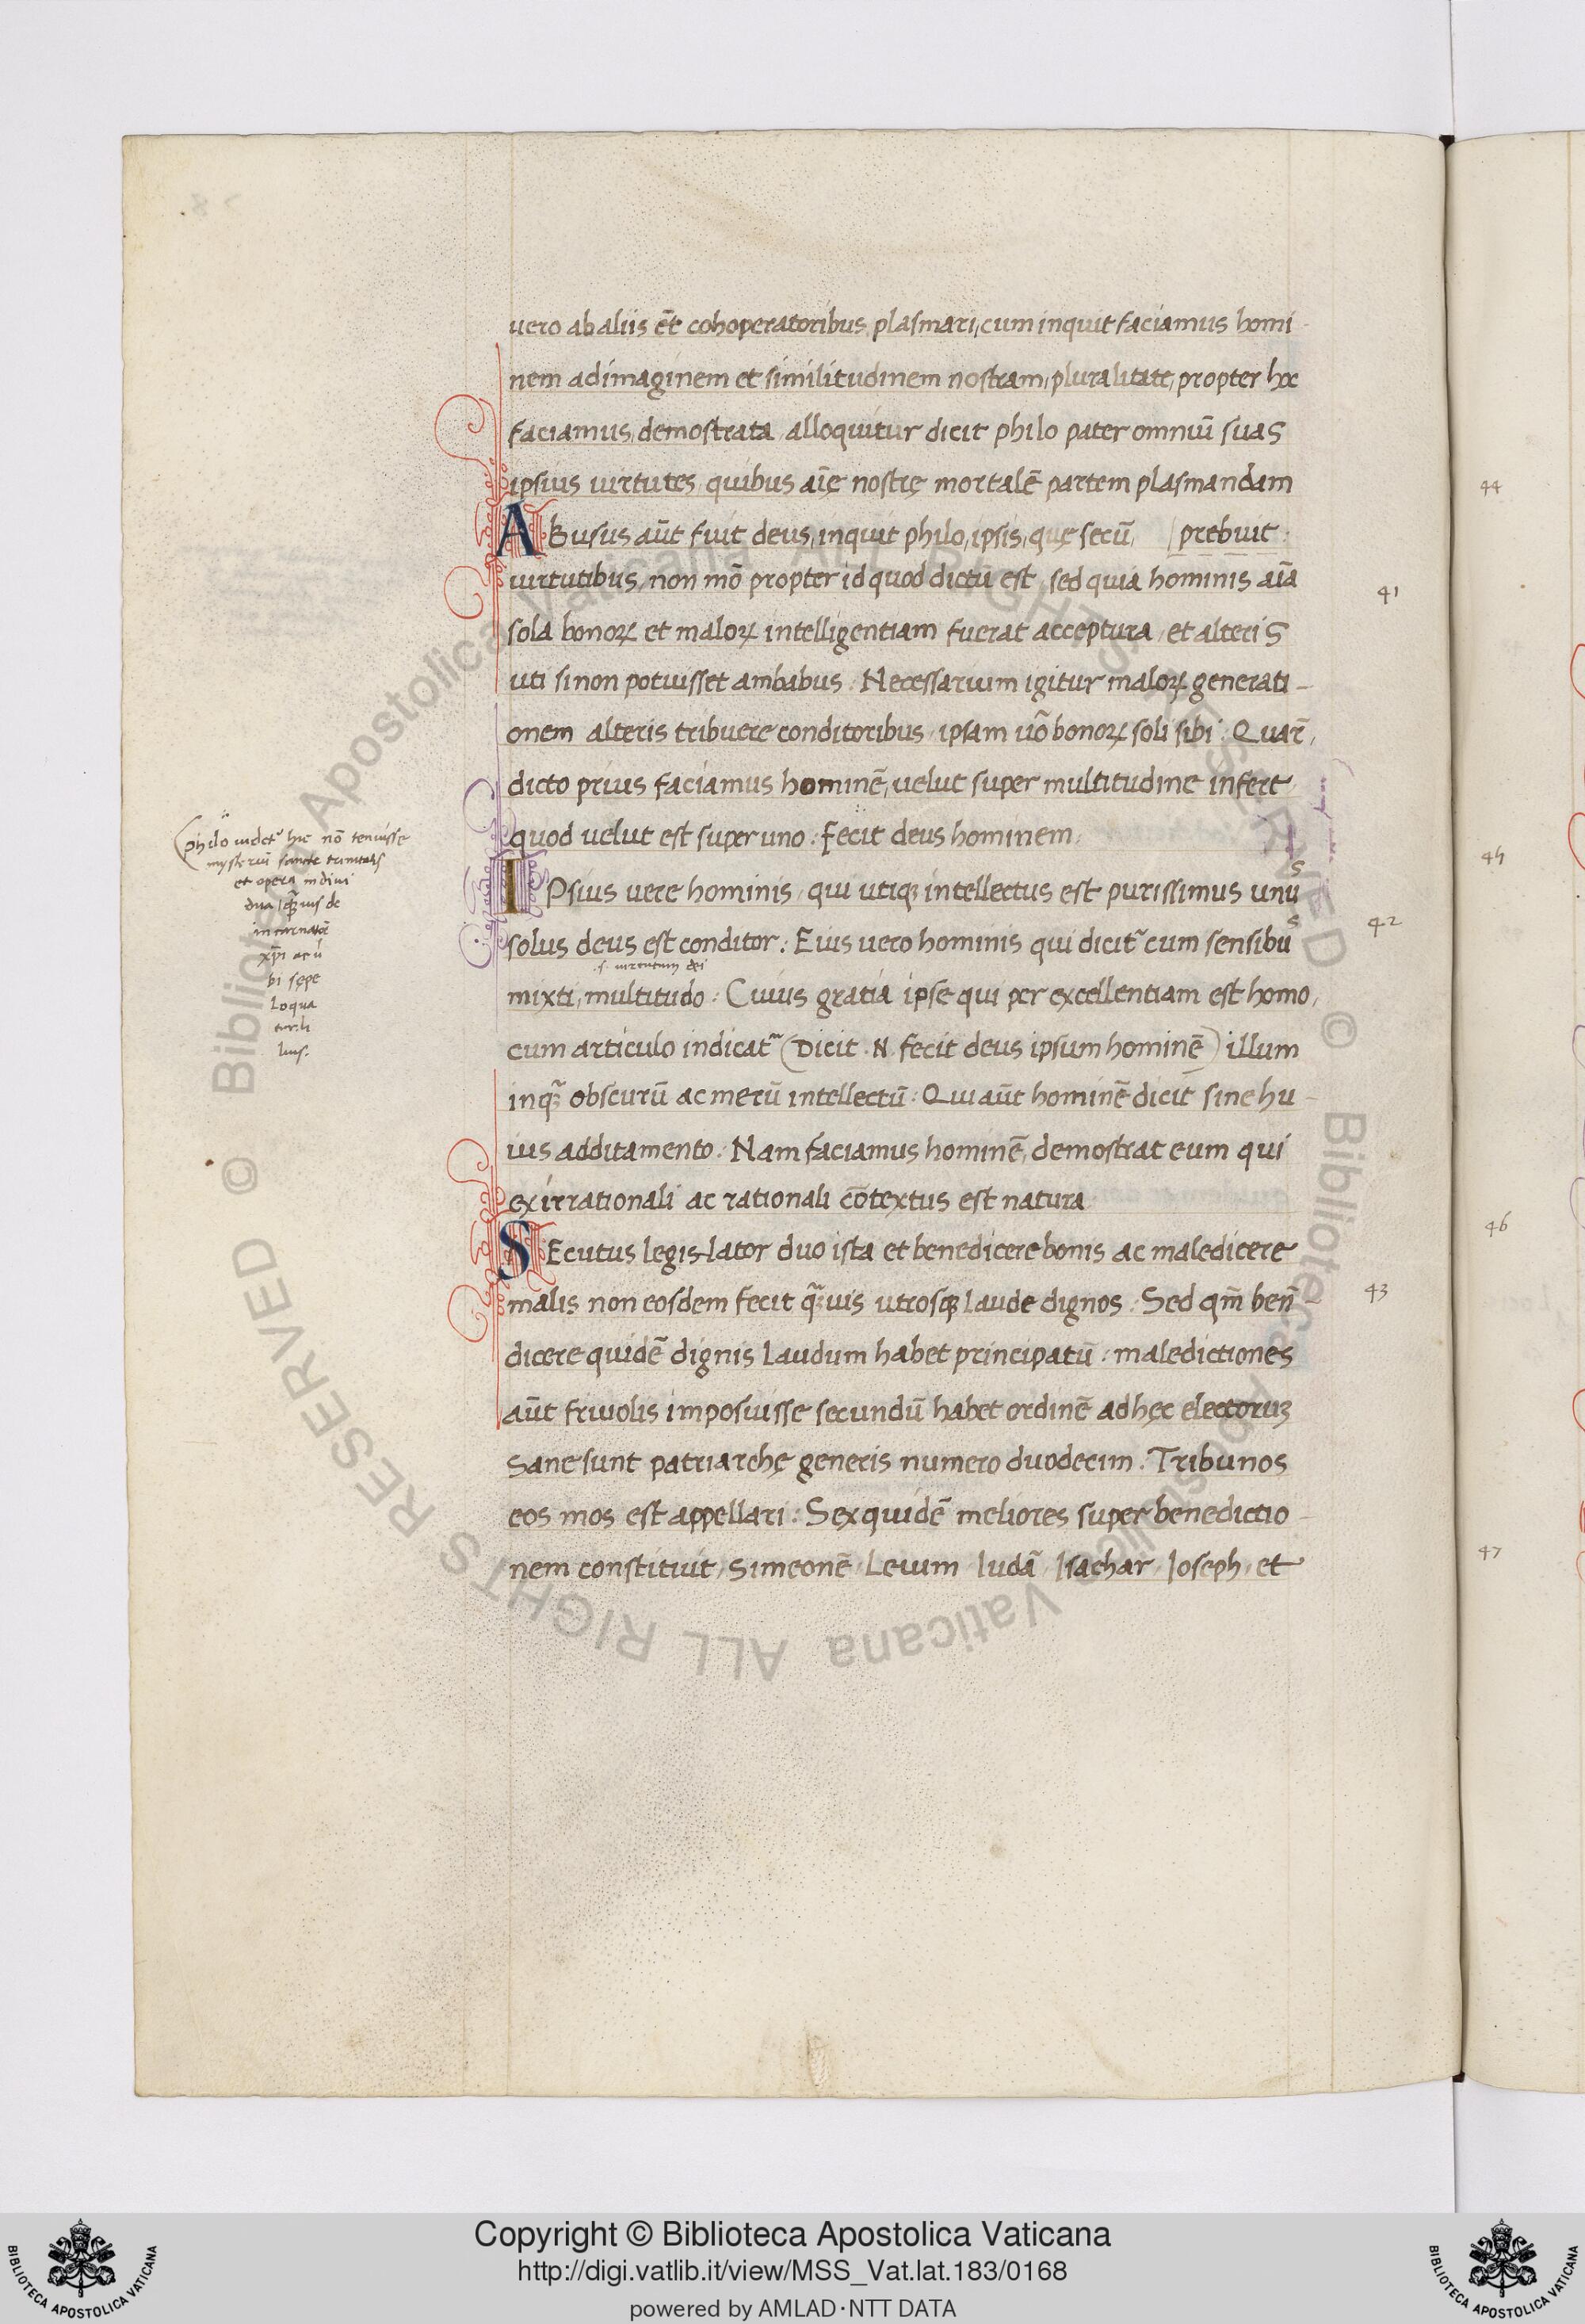 uero ab aliis ēt cohoperatoribus, plasmari, cum inquit faciamus homi-
nem ad imaginem et similitudinem nostram, pluralitate, propter hoc
faciamus, demostrata, alloquitur dicit philo pater omniū suas
ipsius uirtutes, quibus aīę nostrę mortalē partem plasmandam
ABusus aūt fuit deus, inquit philo, ipsis, quę secū, | prebuit:
uirtutibus, non mō propter id quod dictū est, sed quia hominis aīa
sola bonoꝝ et maloꝝ intelligentiam fuerat acceptura, et alteris
uti si non potuisset ambabus. Necessarium igitur maloꝝ generati-
onem alteris tribuere conditoribus, ipsam uō bonoꝝ soli sibi. Quar̄,
dicto prius faciamus hominē, uelut super multitudine infert
quod uelut est super uno: fecit deus hominem,
IPsius uere hominis, qui utiqꝫ intellectus est purissimus unus
solus deus est conditor: Eius uero hominis qui dicit᷑ cum sensibus
.s. uirtutum dei
mixti, multitudo: Cuius gratia ipse qui per excellentiam est homo,
cum articulo indicat᷑ (Dicit .N. fecit deus ipsum hominē) illum
inqꝫ obscurū ac merū intellectū: Qui aūt hominē dicit sine hu-
ius additamento. Nam faciamus hominē, demostrat eum qui
ex irrationali ac rationali cōtextus est natura
SEcutus legislator duo ista et benedicere bonis ac maledicere
malis non eosdem fecit qꝫuis utrosqꝫ laude dignos. Sed qm̄ ben̄-
dicere quidē dignis laudum habet principatū: maledictiones
aūt friuolis imposuisse secundū habet ordinē ad hęc electorum
sane sunt patriarchę generis numero duodecim. Tribunos
eos mos est appellari: Sex quidē meliores super benedictio-
nem constituit, Simeonē, Leuim Iudā, Isachar, Ioseph, et
(philo uidet᷑ hic nō tenuisse
mysteriū sancte trinitatis
et opera indiui
dua, qꝫuis de
incarnatōē
xp̄i ac u
bi sępe
loqua
tur. li
lius.
41
42
43
44
45
46
47
Copyright © Biblioteca Apostolica Vaticana
http://digi.vatlib.it/view/MSS_Vat.lat.183/0168
powered by AMLAD·NTT DATA
BIBLIOTECA APOSTOLICA VATICANA
BIBLIOTECA APOSTOLICA VATICANA
© Biblioteca Apostolica Vaticana ALL RIGHTS RESERVED
© Biblioteca Apostolica Vaticana ALL RIGHTS RESERVED